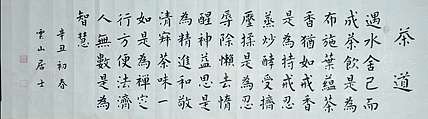 茶道
遇水舍己而
成茶飲是為
布施葉蘊茶
香猶如戒香
是為持戒忍
蒸炒酵受擠
壓揉是為忍
辱除懶去惰
醒神益思是
為精進和敬
清寂茶味一
如是為禪定
行方便法濟
人無數是為
智慧
辛丑初春
雲山居士